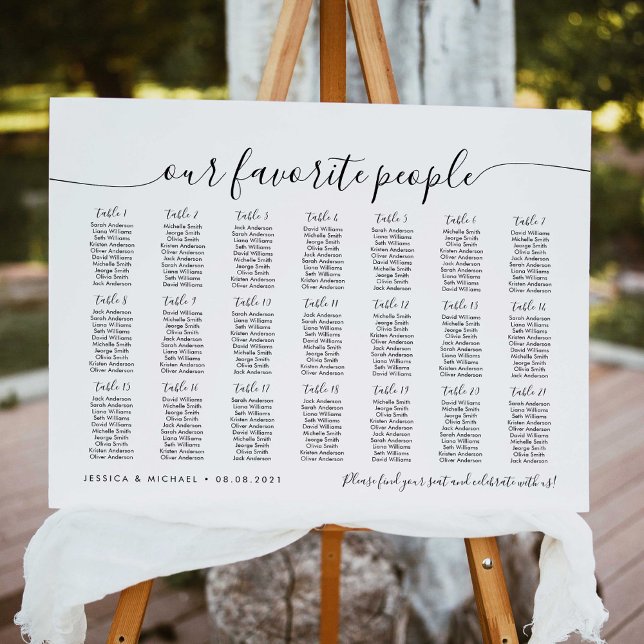 our favorite people
Table 1
Sarah Anderson
Liana Williams
Seth Williams
Kristen Anderson
Oliver Anderson
David Williams
Michelle Smith
Jeorge Smith
Olivia Smith
Jack Anderson
Table 2
Michelle Smith
Jeorge Smith
Olivia Smith
Kristen Anderson
Oliver Anderson
Jack Anderson
Sarah Anderson
Liana Williams
Seth Williams
David Williams
Table 3
Jack Anderson
Sarah Anderson
Liana Williams
Seth Williams
David Williams
Michelle Smith
Jeorge Smith
Olivia Smith
Kristen Anderson
Oliver Anderson
Table 4
David Williams
Michelle Smith
Jeorge Smith
Olivia Smith
Kristen Anderson
Oliver Anderson
Jack Anderson
Sarah Anderson
Liana Williams
Seth Williams
Table 5
Sarah Anderson
Liana Williams
Seth Williams
Kristen Anderson
Oliver Anderson
David Williams
Michelle Smith
Jeorge Smith
Olivia Smith
Jack Anderson
Table 6
Michelle Smith
Jeorge Smith
Olivia Smith
Kristen Anderson
Oliver Anderson
Jack Anderson
Sarah Anderson
Liana Williams
Seth Williams
David Williams
Table 7
Jack Anderson
Sarah Anderson
Liana Williams
Seth Williams
David Williams
Michelle Smith
Jeorge Smith
Olivia Smith
Kristen Anderson
Oliver Anderson
Table 8
Jack Anderson
Sarah Anderson
Liana Williams
Seth Williams
David Williams
Michelle Smith
Jeorge Smith
Olivia Smith
Kristen Anderson
Oliver Anderson
Table 9
David Williams
Michelle Smith
Jeorge Smith
Olivia Smith
Kristen Anderson
Oliver Anderson
Sarah Anderson
Liana Williams
Seth Williams
Jack Anderson
Table 10
Jack Anderson
Sarah Anderson
Liana Williams
Seth Williams
David Williams
Michelle Smith
Jeorge Smith
Olivia Smith
Kristen Anderson
Oliver Anderson
Table 11
Jack Anderson
Sarah Anderson
Liana Williams
Seth Williams
David Williams
Michelle Smith
Jeorge Smith
Olivia Smith
Kristen Anderson
Oliver Anderson
Table 12
Michelle Smith
Jeorge Smith
Olivia Smith
Kristen Anderson
Oliver Anderson
Jack Anderson
Sarah Anderson
Liana Williams
Seth Williams
David Williams
Table 13
David Williams
Michelle Smith
Jeorge Smith
Olivia Smith
Kristen Anderson
Oliver Anderson
Sarah Anderson
Liana Williams
Seth Williams
Jack Anderson
Table 14
Jack Anderson
Sarah Anderson
Liana Williams
Seth Williams
David Williams
Michelle Smith
Jeorge Smith
Olivia Smith
Kristen Anderson
Oliver Anderson
Table 15
Jack Anderson
Sarah Anderson
Liana Williams
Seth Williams
David Williams
Michelle Smith
Jeorge Smith
Olivia Smith
Kristen Anderson
Oliver Anderson
Table 16
David Williams
Michelle Smith
Jeorge Smith
Olivia Smith
Kristen Anderson
Oliver Anderson
Sarah Anderson
Liana Williams
Seth Williams
Jack Anderson
Table 17
Jack Anderson
Sarah Anderson
Liana Williams
Seth Williams
David Williams
Michelle Smith
Jeorge Smith
Olivia Smith
Kristen Anderson
Oliver Anderson
Table 18
Jack Anderson
Sarah Anderson
Liana Williams
Seth Williams
David Williams
Michelle Smith
Jeorge Smith
Olivia Smith
Kristen Anderson
Oliver Anderson
Table 19
Michelle Smith
Jeorge Smith
Olivia Smith
Kristen Anderson
Oliver Anderson
Jack Anderson
Sarah Anderson
Liana Williams
Seth Williams
David Williams
Table 20
David Williams
Michelle Smith
Jeorge Smith
Olivia Smith
Kristen Anderson
Oliver Anderson
Sarah Anderson
Liana Williams
Seth Williams
Jack Anderson
Table 21
Jack Anderson
Sarah Anderson
Liana Williams
Seth Williams
David Williams
Michelle Smith
Jeorge Smith
Olivia Smith
Kristen Anderson
Oliver Anderson
JESSICA & MICHAEL • 08.08.2021
Please find your seat and celebrate with us!